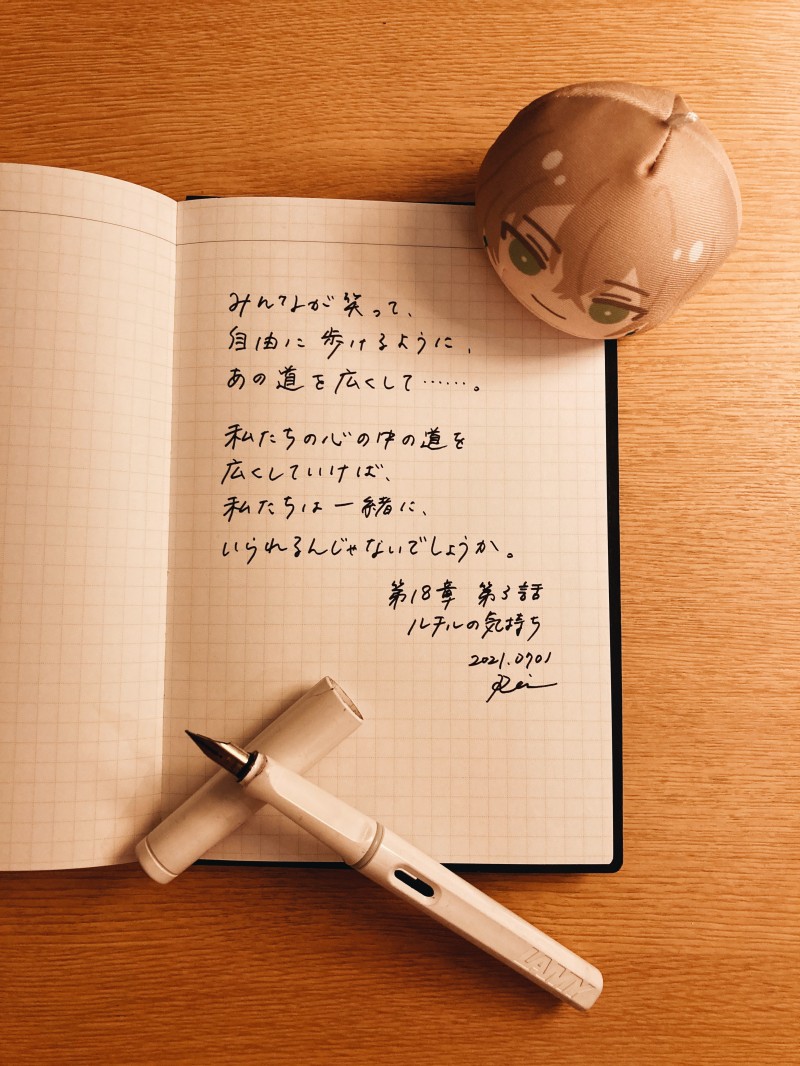 みんなが笑って、
自由に歩けるように、
あの道を広くして……。
私たちの心の中の道を
広くしていけば、
私たちは一緒に、
いられるんじゃないでしょうか。
第18章 第3話
ルチルの気持ち
2021.0701
Rei
LAMY